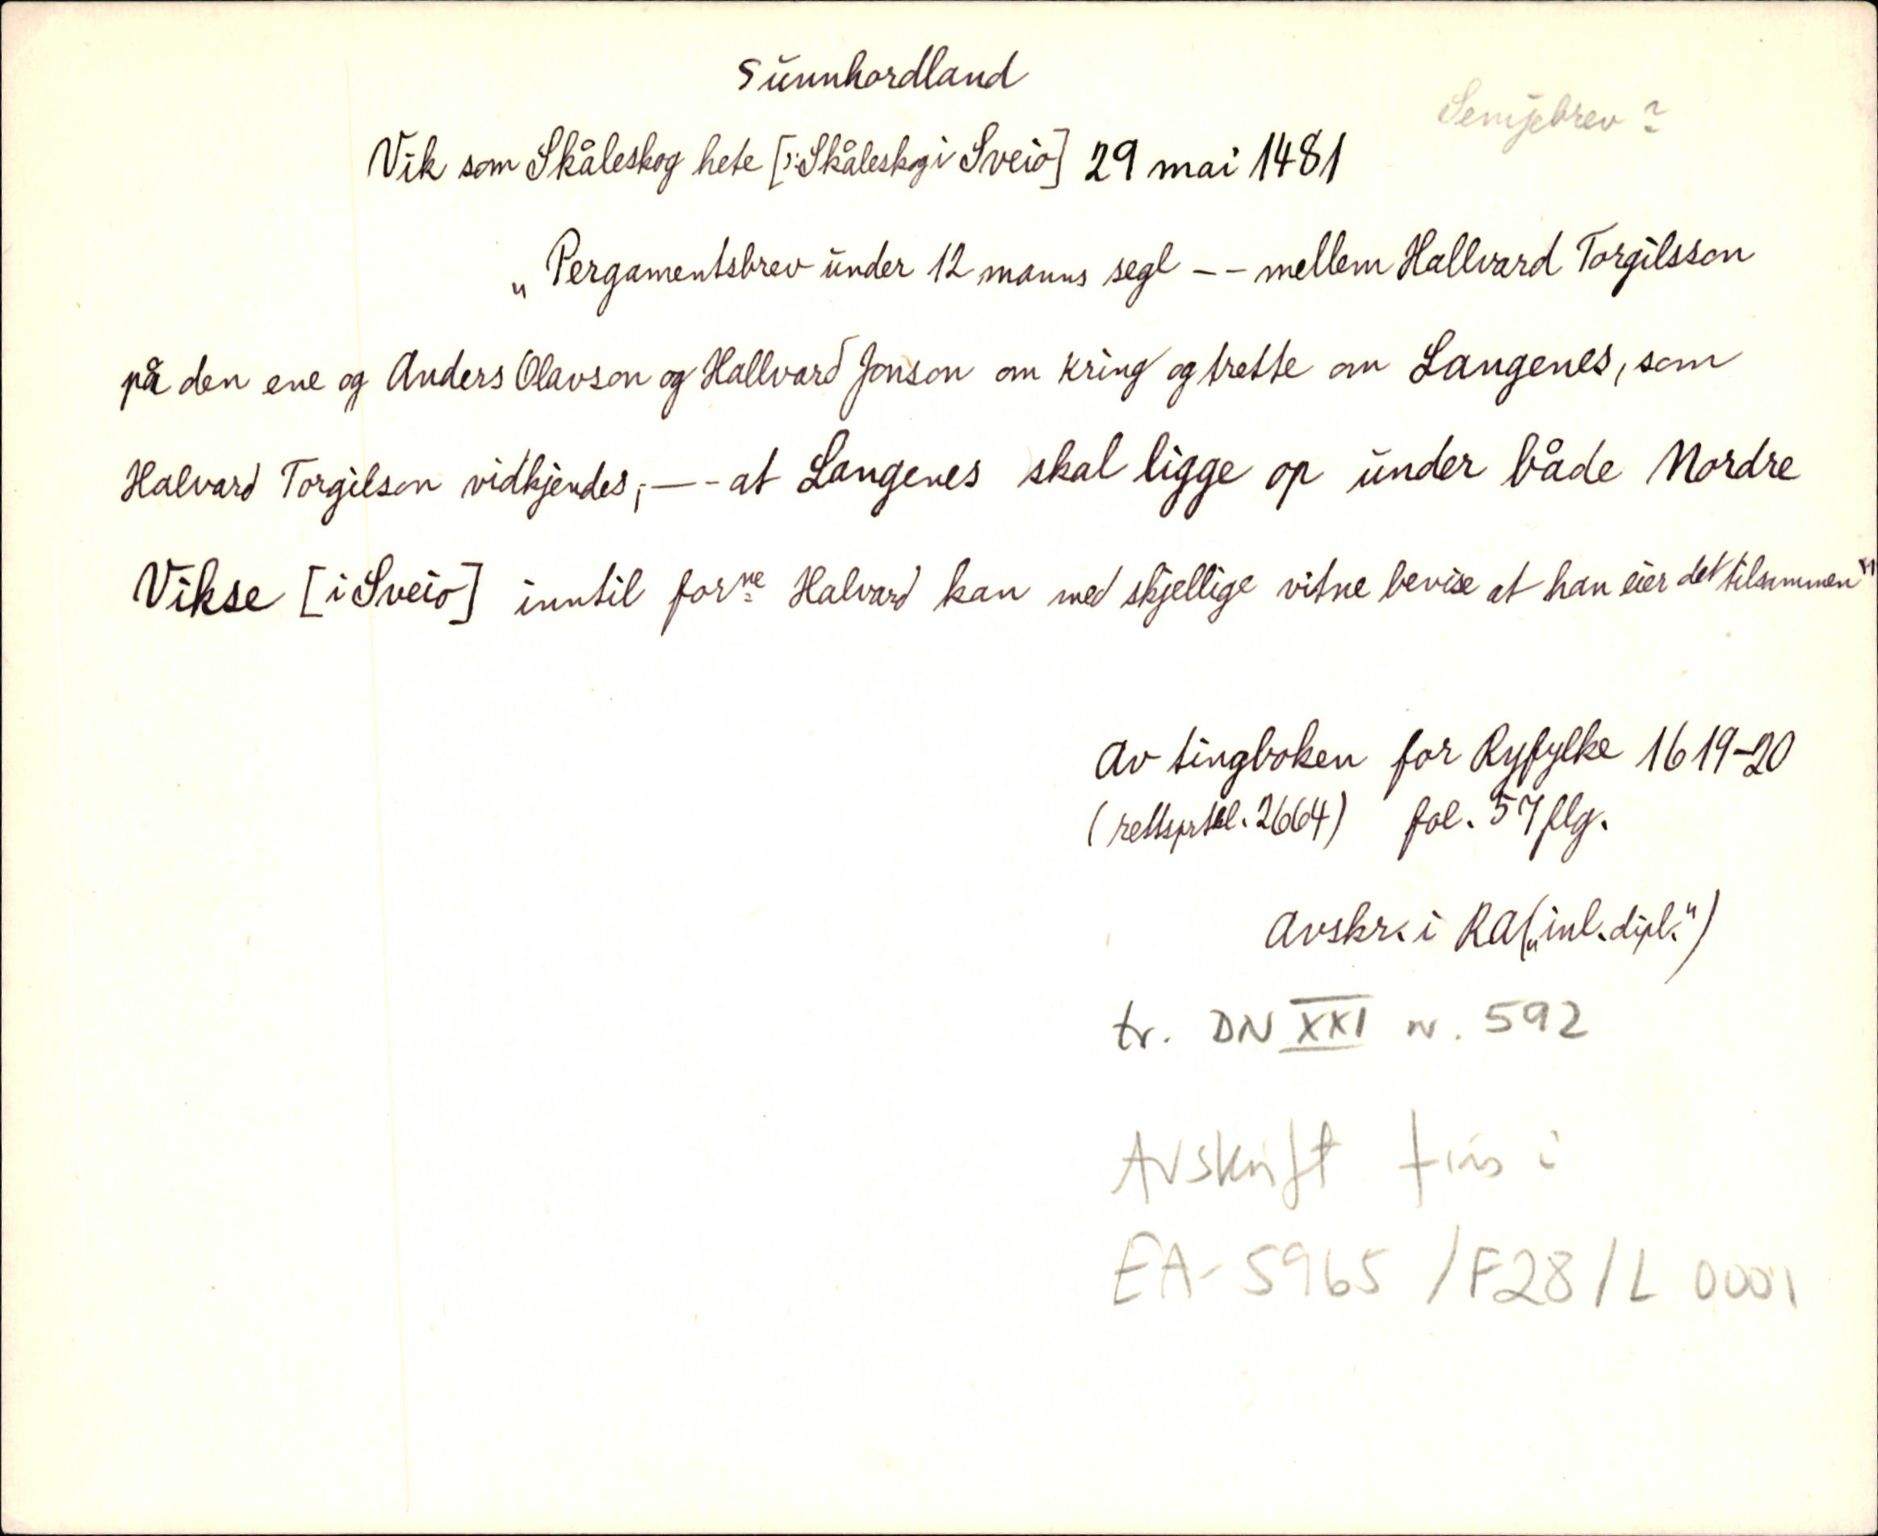 Sunnhordland
Semjebrev?
Vik som Skåleskog hete [ɔ: Skåleskog i Sveio] 29 mai 1481
„Pergamentsbrev under 12 manns segl – – mellem Hallvard Torgilsson
på den ene og Anders Olavson og Hallvard Jonson om kring og trette om Langenes, som
Halvard Torgilson vidkjendes, – – at Langenes skal ligge op under både Nordre
Vikse [i Sveio] inntil forne Halvard kan med skjellige vitne bevise at han eier det tilsammen"
Av tingboken for Ryfylke 1619-20
(rettsprtkl. 2664) fol. 57 flg.
Avskr. i RA („inl. dipl.")
tr. DN XXI nr. 592
Avskrift fins i
EA-5965 /F28/L 0001